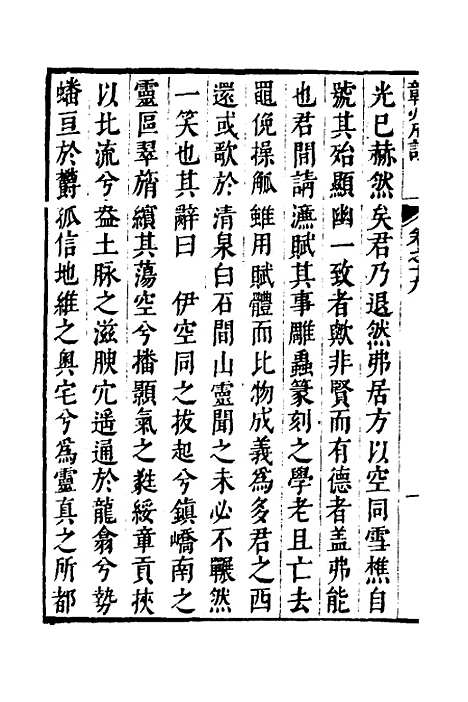 贛州府志
卷之十九
一
光已赫然矣君乃退然弗居方以空同雪樵自
號其殆顯幽一致者歟非賢而有德者盖弗能
也君間請濂賦其事雕蟲篆刻之學老且亡去
黽俛操觚雖用賦體而比物成義為多君之西
還或歌於清泉白石間山靈聞之未必不囅然
一笑也其辭曰　伊空同之拔起兮鎮嶠南之
靈區翠旓繽其蕩空兮播顥氣之蕤綏童貢挾
以北流兮盎土脉之滋腴穴遥通於龍翕兮勢
蟠亘於欝孤信地維之奥宅兮爲靈真之所都